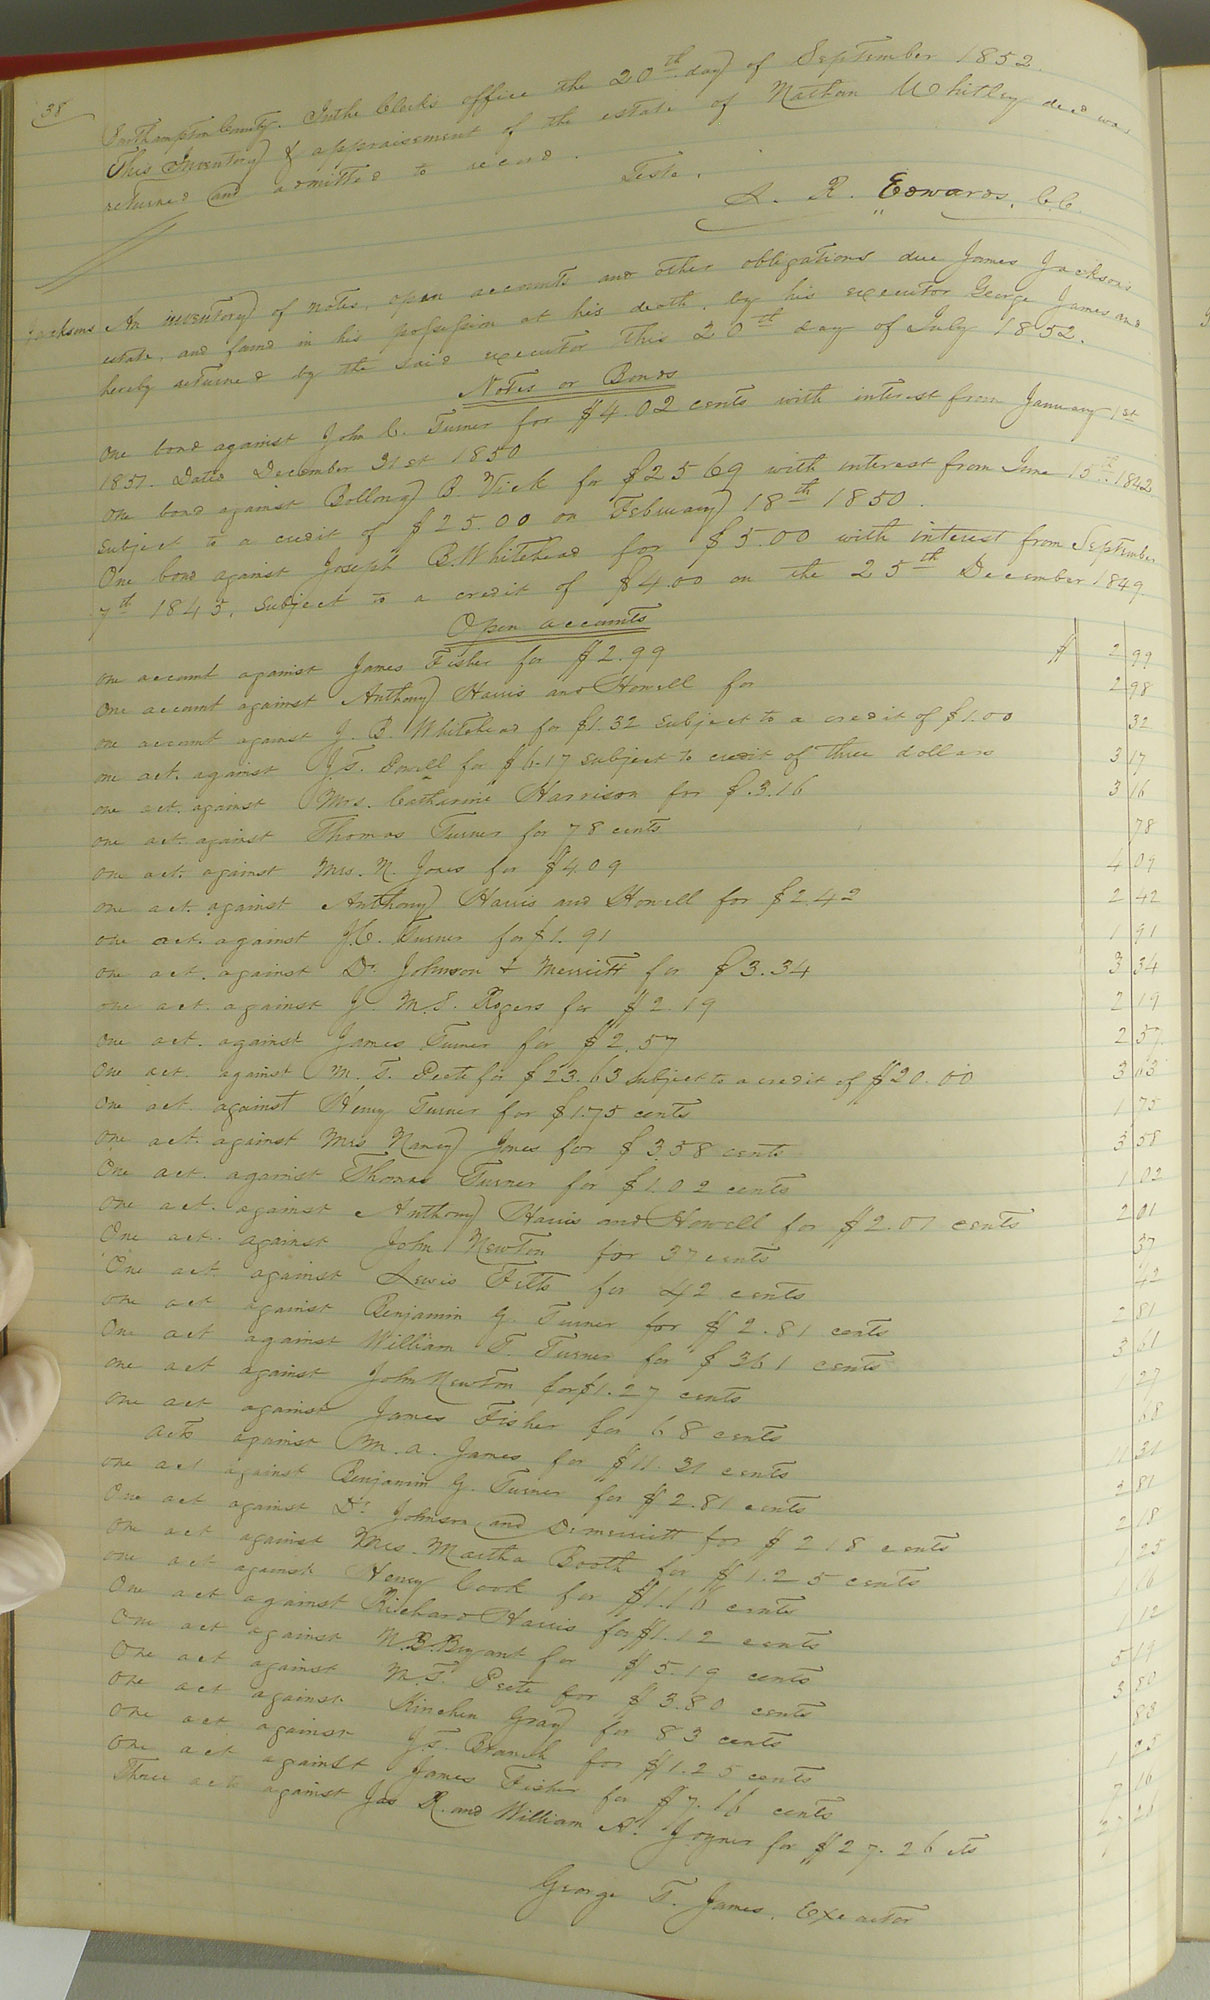 38
Southampton County. In the Clerk's office the 20th day of September 1852.
This Inventory & appraisement of the estate of Nathan Whitley decd was
returned and admitted to record.
Teste.
L. R. Edwards, C.C.
Jacksons An inventory of notes, open accounts and other obligations due James Jacksons
estate, and found in his possession at his death, by his executor George James and
hereby returned by the said executor this 20th day of July 1852.
Notes or Bonds
One bond against John C. Turner for $4.02 cents with interest from January 1st
1851. Dated December 31st 1850
One bond against Bolloney B. Vick for $25 69 with interest from June 15th 1842
subject to a credit of $25.00 on February 18th 1850.
One bond against Joseph B. Whitehead for $5.00 with interest from September
7th 1845, subject to a credit of $4.00 on the 25th December 1849
Open accounts
one account against James Fisher for $2.99 $ 2 99
One account against Anthony Harris and Howell for 2 98
one account against J. B. Whitehead for $1.32 subject to a credit of $1.00 32
one act. against J. T. Powell for $6.17 subject to credit of three dollars 3 17
one act. against Mrs. Catharine Harrison for $.3.16 3 16
one act. against Thomas Turner for 78 cents 78
one act. against Mrs. N. Jones for $4.09 4 09
one act. against Anthony Harris and Howell for $2.42 2 42
one act. against J. C. Turner for $1.91 1 91
one act. against Dr. Johnson & Merritt for $3.34 3 34
one act. against J. M. S. Rogers for $2.19 2 19
one act. against James Turner for $2.57 2 57
One act. against M. T. Peete for $23.63 subject to a credit of $20.00 3 63
one act. against Henry Turner for $1.75 cents 1 75
one act. against Mrs Nancy Jones for $3.58 cents 3 58
One act. against Thomas Turner for $1.02 cents 1 02
one act. against Anthony Harris and Howell for $2.01 cents 2 01
One act. against John Newton for 37 cents 37
One act. against Lewis Fitts for 42 cents 42
one act against Benjamin G. Turner for $2.81 cents 2 81
One act against William T. Turner for $361 cents 3 61
one act against John Newton for $1.27 cents 1 27
one act against James Fisher for 68 cents 68
acts against M. A. James for $11.31 cents 11 31
one act against Benjamin G. Turner for $2.81 cents 2 81
One act against Dr. Johnson and Demerritt for $218 cents 2 18
one act against Mrs. Martha Booth for $1.25 cents 1 25
one act against Henry Cook for $1.16 cents 1 16
One act against Richard Harris for $1.12 cents 1 12
One act against M. B. Bryant for $5.19 cents 5 19
One act against M. T. Peete for $3.80 cents 3 80
one act against Kinchen Gray for 83 cents 83
one act against J. T. Branch for $1.25 cents 1 25
one act against James Fisher for $7.16 cents 7 16
Three acts against Jas R. and William A. Joyner for $27.26 cts 27 26
George T. James, Executor